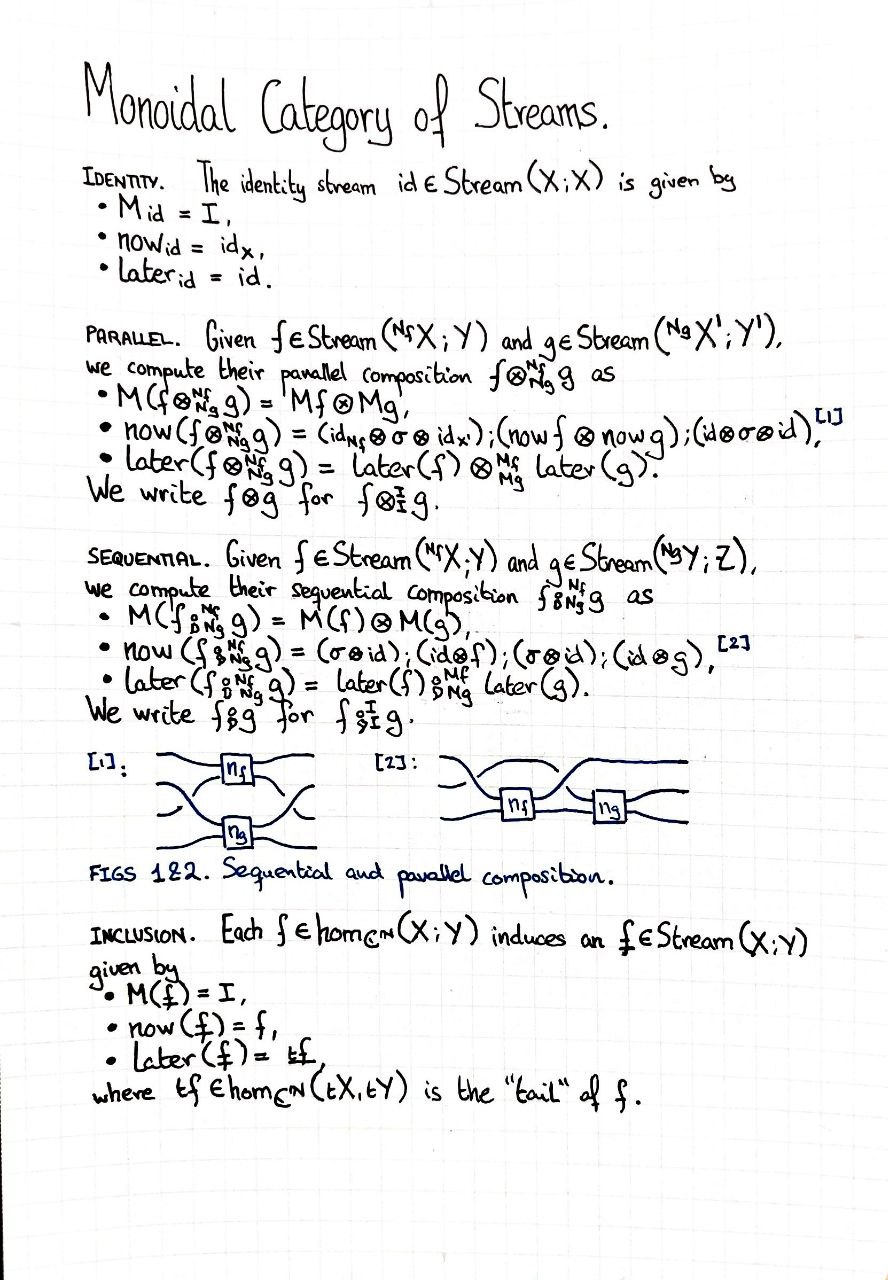 Monoidal Category of Streams.
IDENTITY. The identity stream id ∈ Stream(X;X) is given by
• M_id = I,
• now_id = id_X,
• later_id = id.
PARALLEL. Given f ∈ Stream(^{Nf}X;Y) and g ∈ Stream(^{Ng}X';Y'),
we compute their parallel composition f⊗^{Nf}_{Ng}g as
• M(f⊗^{Nf}_{Ng}g) = Mf⊗Mg,
• now(f⊗^{Nf}_{Ng}g) = (id_{Nf}⊗σ⊗id_{X'});(now f ⊗ now g);(id⊗σ⊗id),^{[1]}
• later(f⊗^{Nf}_{Ng}g) = later(f) ⊗^{Mf}_{Mg} later(g).
We write f⊗g for f⊗^I_I g.
SEQUENTIAL. Given f ∈ Stream(^{Nf}X;Y) and g ∈ Stream(^{Ng}Y;Z),
we compute their sequential composition f⨾^{Nf}_{Ng}g as
• M(f⨾^{Nf}_{Ng}g) = M(f)⊗M(g),
• now(f⨾^{Nf}_{Ng}g) = (σ⊗id);(id⊗f);(σ⊗id);(id⊗g),^{[2]}
• later(f⨾^{Nf}_{Ng}g) = later(f)⨾^{Mf}_{Mg} later(g).
We write f⨾g for f⨾^I_I g.
[1]: n_f n_g [2]: n_f n_g
FIGS 1&2. Sequential and parallel composition.
INCLUSION. Each f ∈ hom_{ℂ^ℕ}(X;Y) induces an f ∈ Stream(X;Y)
given by
• M(f) = I,
• now(f) = f,
• later(f) = tf,
where tf ∈ hom_{ℂ^ℕ}(tX,tY) is the "tail" of f.